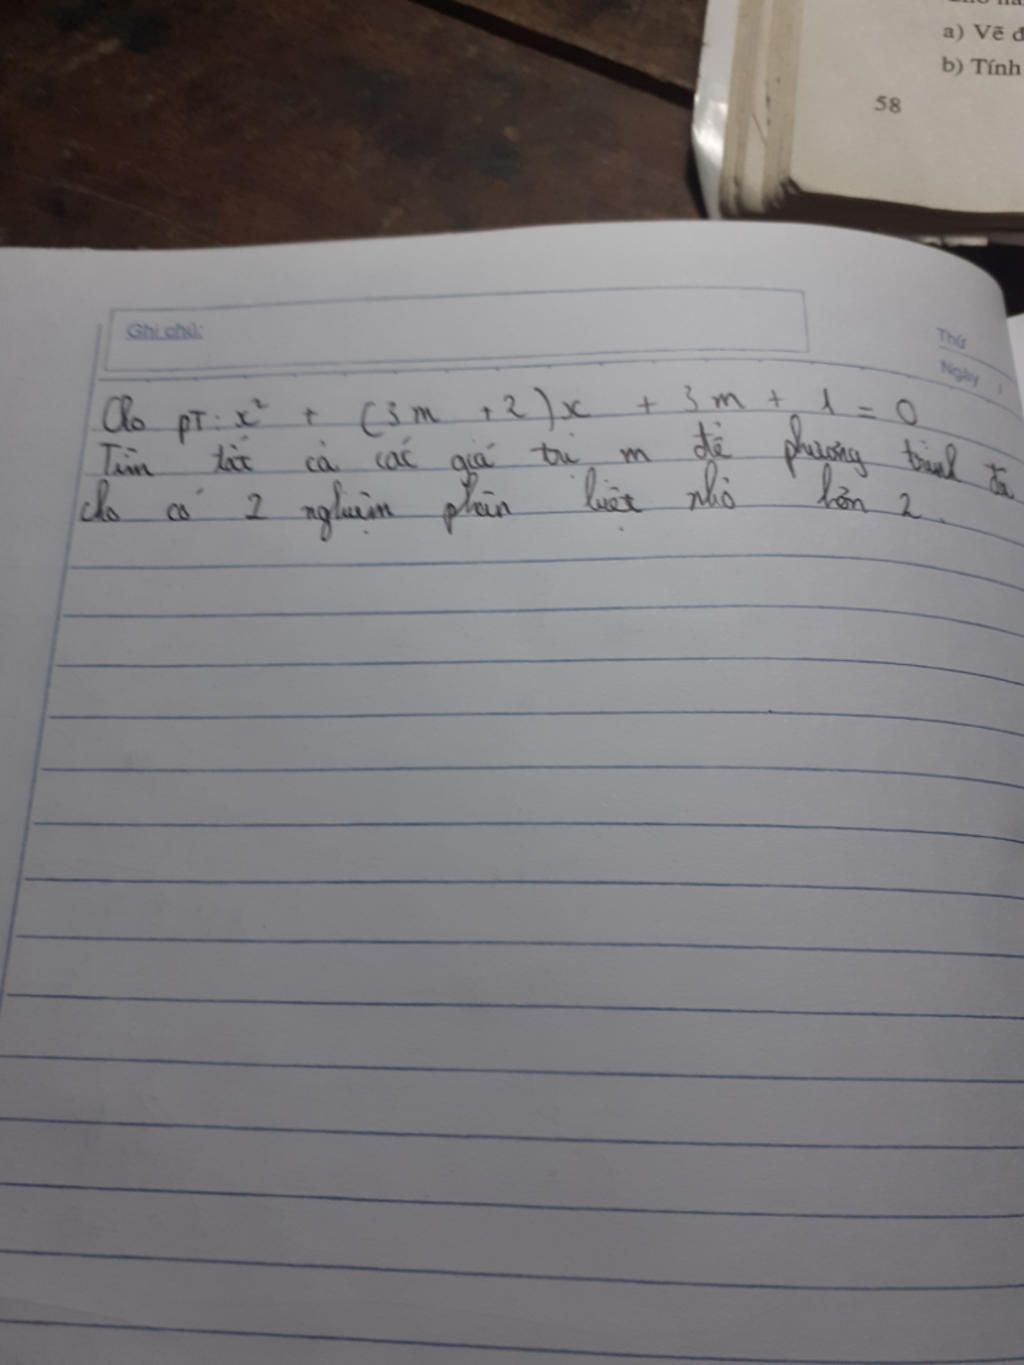 a) Vẽ đ
b) Tính
58
Ghi chú:
Thứ
Ngày
Cho pT: x² + (3m + 2)x + 3m + 1 = 0
Tìm tất cả các giá trị m để phương trình đã
cho có 2 nghiệm phân biệt nhỏ hơn 2.